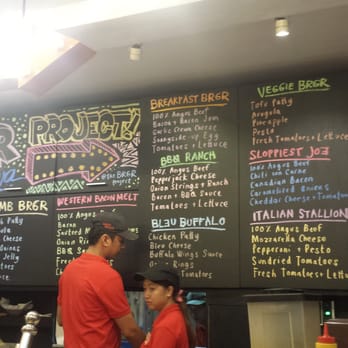 PROJECT!
BREAKFAST BRGR
100% Angus Beef
Bacon + Bacon Jam
Garlic Cream Cheese
Sunnyside-up Egg
Tomatoes + Lettuce
BBQ RANCH
100% Angus Beef
Pepperjack Cheese
Onion Strings + Ranch
Bacon + BBQ Sauce
Tomatoes + Lettuce
BLEU BUFFALO
Chicken Patty
Bleu Cheese
Buffalo Wings Sauce
Onion Rings
Tomatoes
VEGGIE BRGR
Tofu Patty
Arugula
Pineapple
Pesto
Fresh Tomatoes + Lettuce
SLOPPIEST JOE
100% Angus Beef
Chili con Carne
Canadian Bacon
Caramelized Onions
Cheddar Cheese + Tomatoes
ITALIAN STALLION
100% Angus Beef
Mozzarella Cheese
Pepperoni + Pesto
Sundried Tomatoes
Fresh Tomatoes + Lettuce
MB BRGR
Patty
Cheese
Onions
Jelly
Tomatoes
WESTERN BACON MELT
100% Angus Beef
Bacon
Onion Rings
BBQ
Tomatoes